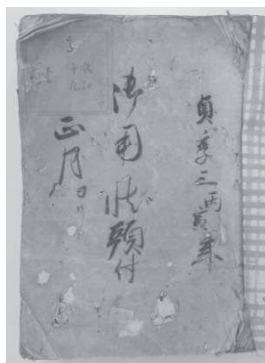 貞享三丙寅年
御用状頭付
正月ヨリ